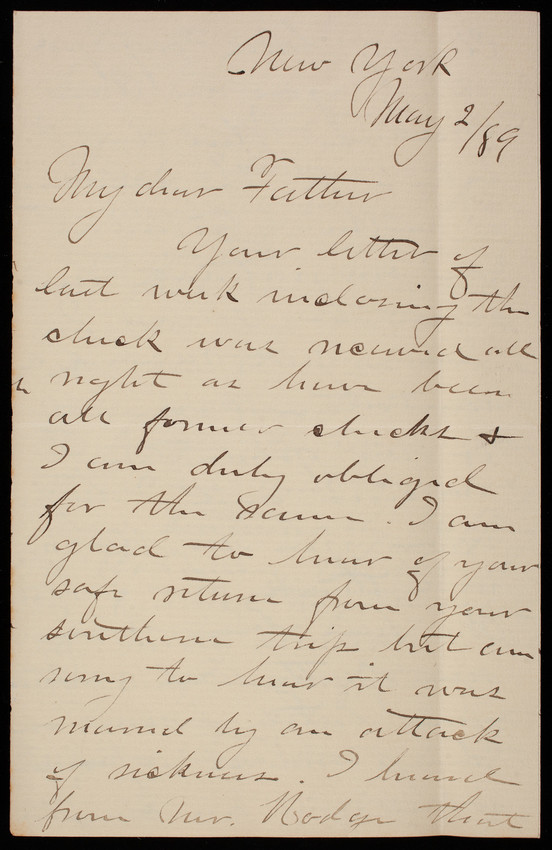 New York
May 2/89
My dear Father
Your letter of
last week inclosing the
check was received all
right as have been
all former checks &
I am duly obliged
for the same. I am
glad to hear of your
safe return from your
southern trip but am
sorry to hear it was
marred by an attack
of sickness. I heard
from Mr. Hodge that